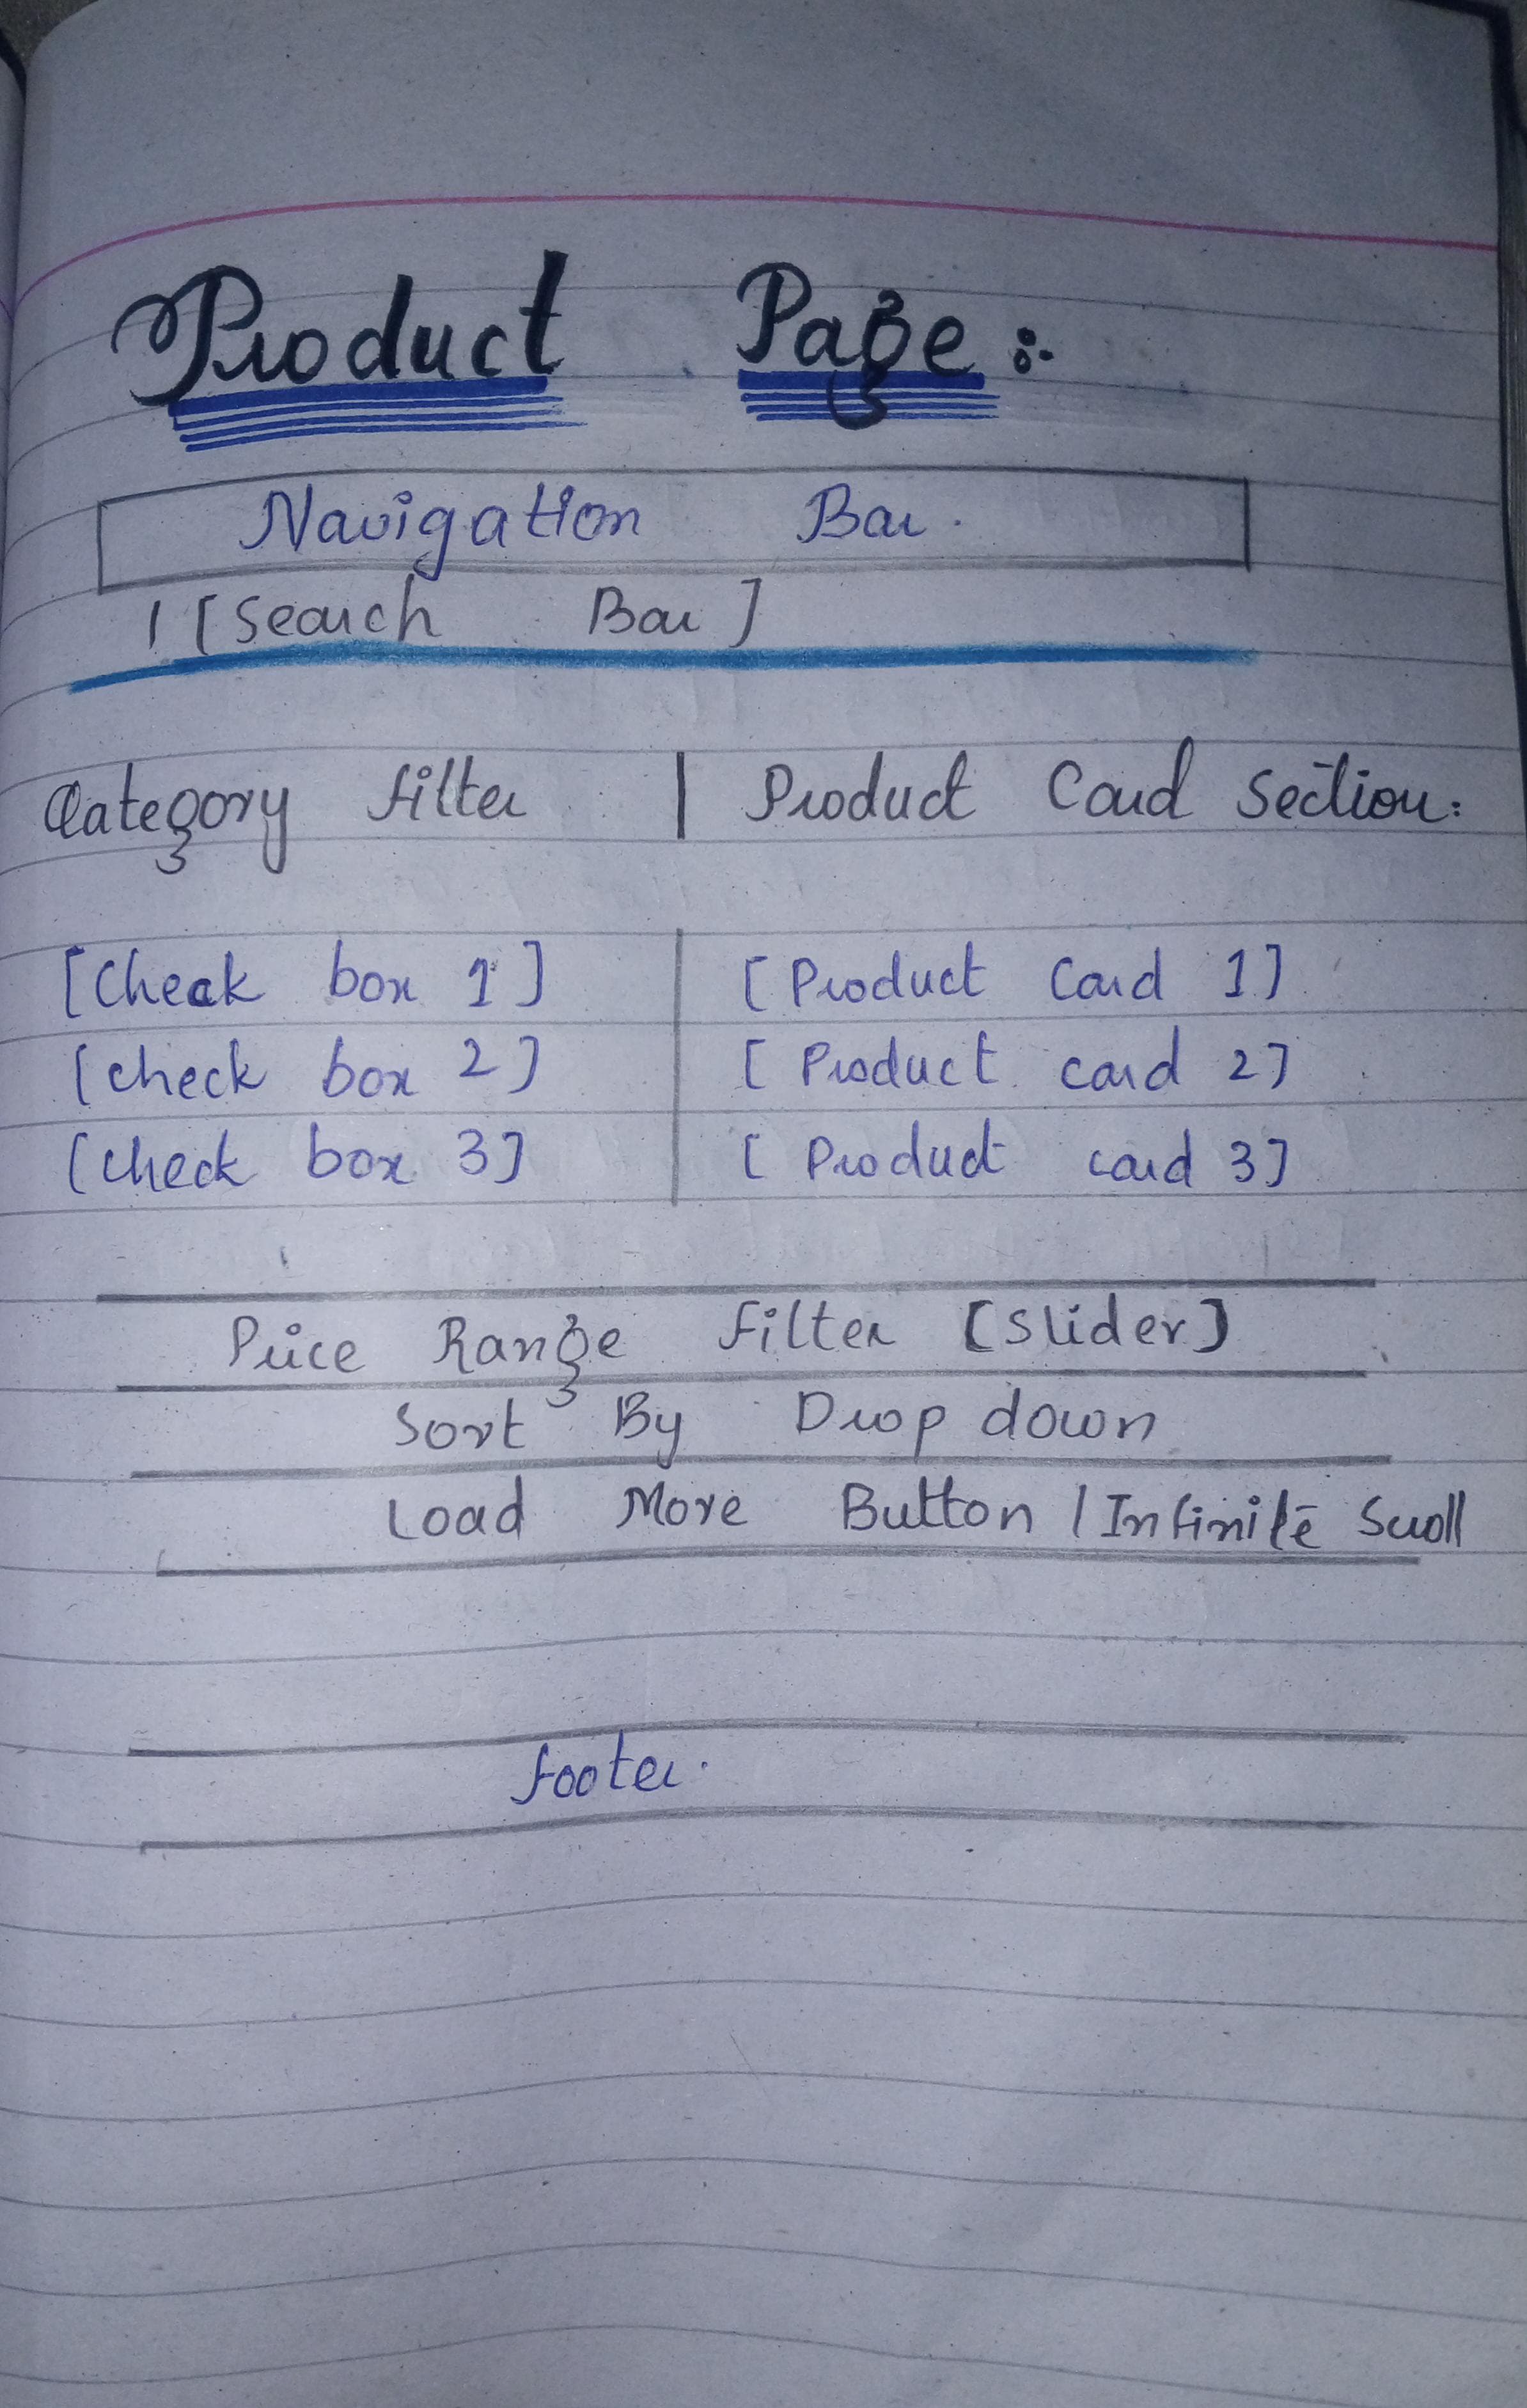 Product Page :-
Navigation Bar.
| [Search Bar]
Category filter | Product Card Section:
[Check box 1] | [Product Card 1]
[check box 2] | [Product card 2]
[check box 3] | [Product card 3]
Price Range filter [Slider]
Sort By Drop down
Load More Button / Infinite Scroll
footer.